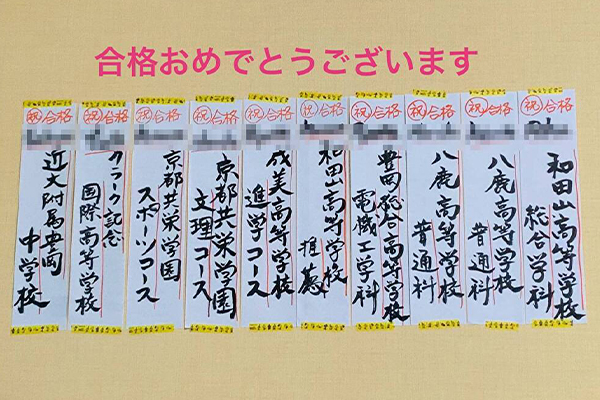 合格おめでとうございます
祝合格
和田山高等学校
総合学科
祝合格
八鹿高等学校
普通科
祝合格
八鹿高等学校
普通科
祝合格
豊岡総合高等学校
電機工学科
祝合格
和田山高等学校
推薦
祝合格
成美高等学校
進学コース
祝合格
京都共栄学園
文理コース
祝合格
京都共栄学園
スポーツコース
祝合格
クラーク記念
国際高等学校
祝合格
近大附属豊岡
中学校